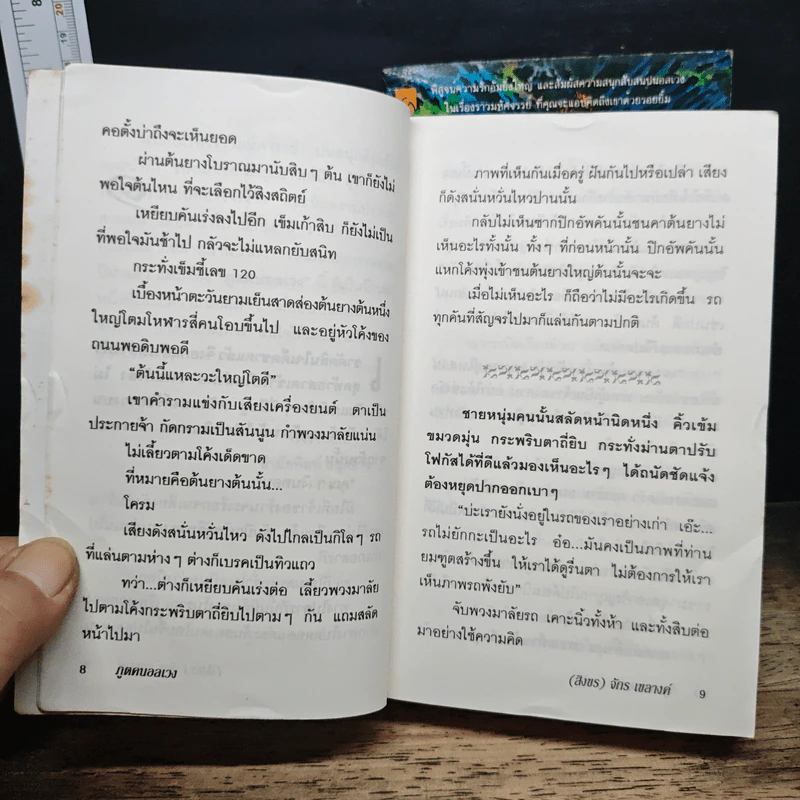 8
20
19
พิสูจน์ความรักอันยิ่งใหญ่ และสัมผัสความสนุกสับสนปนอลเวง
ในเรื่องราวมหัศจรรย์ ที่คุณจะแอบคิดถึงเขาด้วยรอยยิ้ม
คอตั้งบ่าถึงจะเห็นยอด
ผ่านต้นยางโบราณมานับสิบๆ ต้น เขาก็ยังไม่
พอใจต้นไหน ที่จะเลือกไว้สิงสถิตย์
เหยียบคันเร่งลงไปอีก เข็มเก้าสิบ ก็ยังไม่เป็น
ที่พอใจมันช้าไป กลัวจะไม่แหลกยับสนิท
กระทั่งเข็มชี้เลข 120
เบื้องหน้าตะวันยามเย็นสาดส่องต้นยางต้นหนึ่ง
ใหญ่โตมโหฬารสี่คนโอบขึ้นไป และอยู่หัวโค้งของ
ถนนพอดิบพอดี
“ต้นนี้แหละวะใหญ่โตดี”
เขาคำรามแข่งกับเสียงเครื่องยนต์ ตาเป็น
ประกายจ้า กัดกรามเป็นสันนูน กำพวงมาลัยแน่น
ไม่เลี้ยวตามโค้งเด็ดขาด
ที่หมายคือต้นยางต้นนั้น...
โครม
เสียงดังสนั่นหวั่นไหว ดังไปไกลเป็นกิโลๆ รถ
ที่แล่นตามห่างๆ ต่างก็เบรคเป็นทิวแถว
ทว่า...ต่างก็เหยียบคันเร่งต่อ เลี้ยวพวงมาลัย
ไปตามโค้งกระพริบตาถี่ยิบไปตามๆ กัน แถมสลัด
หน้าไปมา
8 ภูตคนอลเวง
ภาพที่เห็นกันเมื่อครู่ ฝันกันไปหรือเปล่า เสียง
ก็ดังสนั่นหวั่นไหวปานนั้น
กลับไม่เห็นซากปิกอัพคันนั้นชนคาต้นยางไม่
เห็นอะไรทั้งนั้น ทั้งๆ ที่ก่อนหน้านั้น ปิกอัพคันนั้น
แหกโค้งพุ่งเข้าชนต้นยางใหญ่ต้นนั้นจะจะ
เมื่อไม่เห็นอะไร ก็ถือว่าไม่มีอะไรเกิดขึ้น รถ
ทุกคันที่สัญจรไปมาก็แล่นกันตามปกติ
ชายหนุ่มคนนั้นสลัดหน้านิดหนึ่ง คิ้วเข้ม
ขมวดมุ่น กระพริบตาถี่ยิบ กระทั่งม่านตาปรับ
โฟกัสได้ที่ดีแล้วมองเห็นอะไรๆ ได้ถนัดชัดแจ้ง
ต้องหยุดปากออกเบาๆ
“บ่ะเรายังนั่งอยู่ในรถของเราอย่างเก่า เอ๊ะ...
รถไม่ยักกะเป็นอะไร อ๋อ...มันคงเป็นภาพที่ท่าน
ยมฑูตสร้างขึ้น ให้เราได้ดูรื่นตา ไม่ต้องการให้เรา
เห็นภาพรถพังยับ”
จับพวงมาลัยรถ เคาะนิ้วทั้งห้า และทั้งสิบต่อ
มาอย่างใช้ความคิด
(สิงขร) จักร เขลางค์ 9